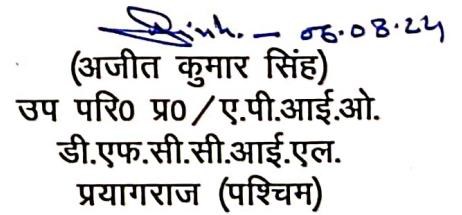 06.08.24
(अजीत कुमार सिंह)
उप परि0 प्र0/ए.पी.आई.ओ.
डी.एफ.सी.सी.आई.एल.
प्रयागराज (पश्चिम)